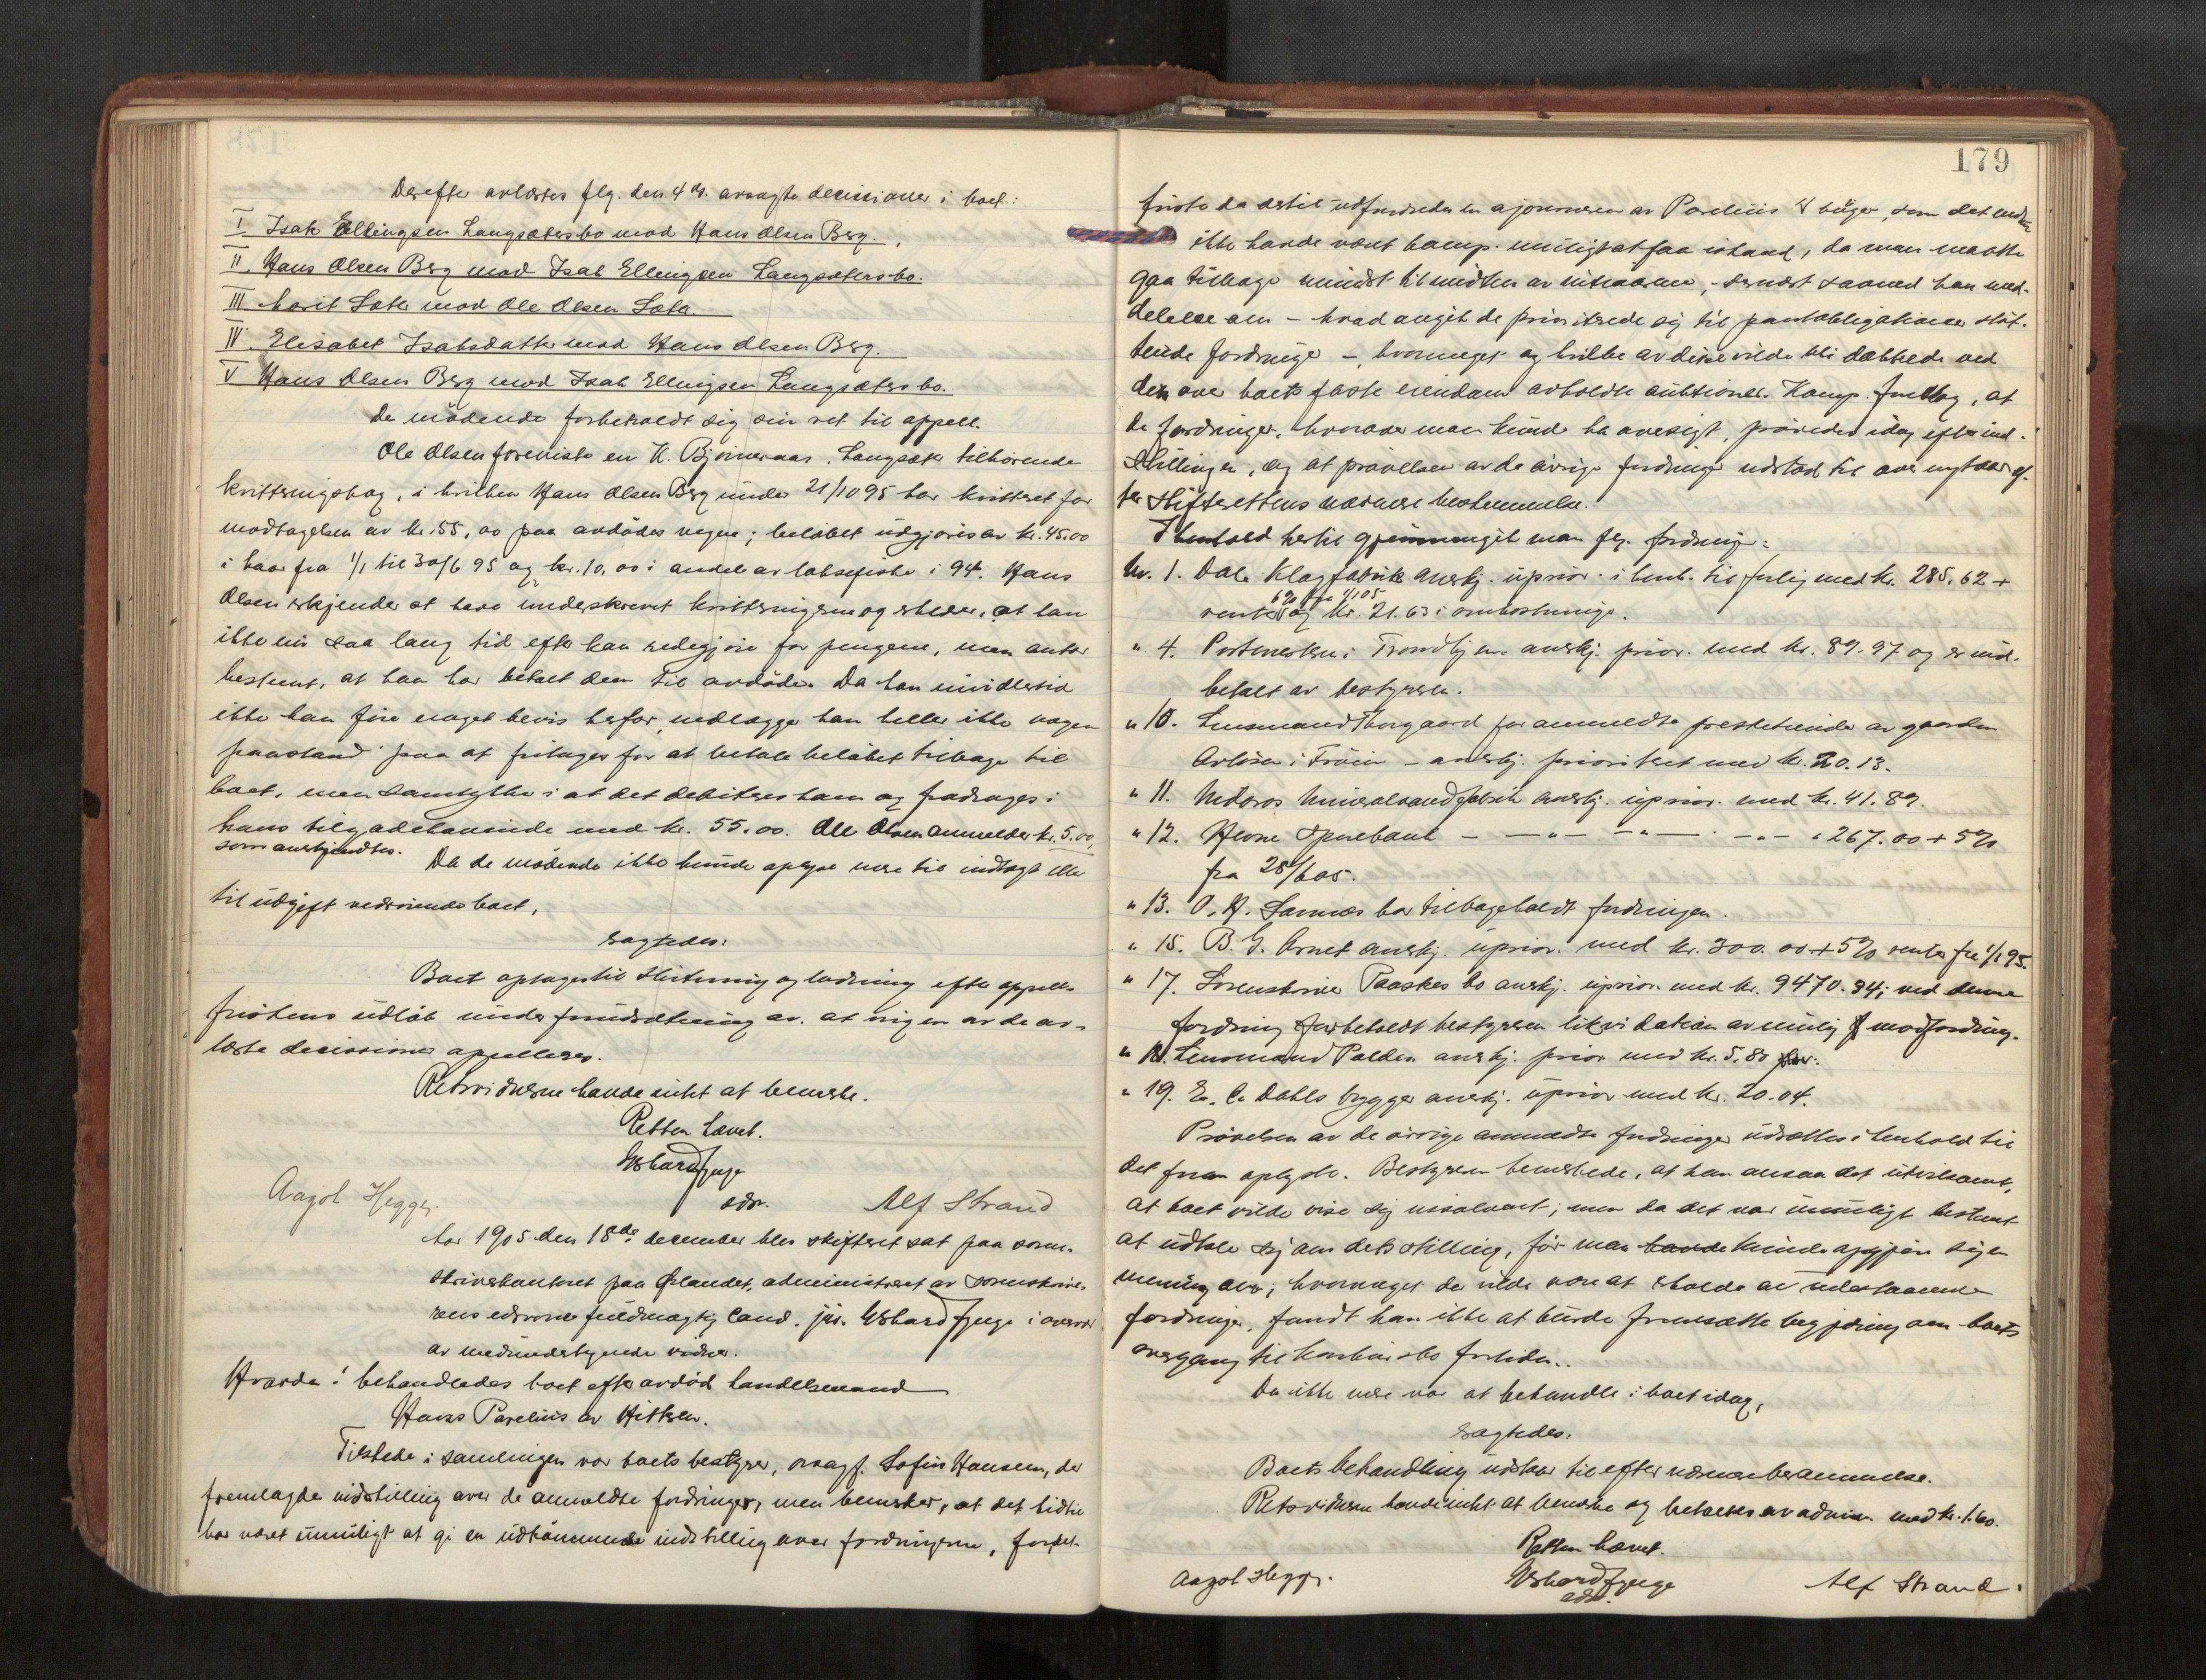 Derefter avlæstes flg. den 4de ds. avsagte decisioner i boet:
I Isak Ellingsen Langsætersbo mod Hans Olsen Berg.
II. Hans Olsen Berg mod Isak Ellingsen Langsætersbo.
III Marit Sæter mod Ole Olsen Sæter.
IV. Elisabet Isaksdatter mod Hans Olsen Berg.
V Hans Olsen Berg mod Isak Ellingsen Langsætersbo.
De mødende forbeholdt sig sin ret til appell.
Ole Olsen foreviste en K. Bjørneraas, Langsæter tilhørende
kvitteringsbog, i hvilken Hans Olsen Berg under 21/10 95 har kvitteret for
modtagelsen av kr. 55,00 paa avdødes vegne; beløbet utgjøres av kr. 45.00
i kaar fra 1/1 til 30/6 95 og kr. 10,00 i andel av laksefiske i 94. Hans
Olsen erkjender at have underskrevet kvitteringerne og erklærer, at han
ikke nu saa lang tid efter kan redegjøre for pengene, men antar
bestemt, at han har betalt dem til avdøde. Da han imidlertid
ikke kan føre noget bevis herfor, nedlægger han heller ikke nogen
paastand paa at fritages for at betale beløbet tilbage til
boet, men samtykker i at det debiteres ham og fradrages i
hans tilgodehavende med kr. 55.00. Ole Olsen anmelder kr. 5.00,
som anerkjendtes. Da de mødende ikke kunde oplyse mere til indtægt eller
til utgift vedrørende boet,
sagtedes:
Boet optages til slutning og lodning efter appell-
fristens utløb under forutsætning av, at ingen av de av-
læste decisioner appelleres.
Retsvidnerne havde intet at bemerke.
Retten hævet.
Eshard Fjuge
edsv.
Aagot Hegge. Alf Strand
Aar 1905 den 18de december blev skifteret sat paa soren-
skriverkontoret paa Ørlandet, administreret av sorenskrive-
rens edsvorne fuldmægtig cand. jur. Eshard Fjuge i overvær
av medunderskrivende vidner.
Hvorda: behandledes boet efter avdød handelsmand
Hans Parelius av Hitteren.
Tilstede i samlingen var boets bestyrer, ovsagf. Sofus Hansen, der
fremlagde indstilling over de anmeldte fordringer, men bemerket, at det hidtil
har været umuligt at gi en uttømmende indstilling over fordringerne, fordet
179
første da dertil utfordredes en ajourføren av Parelius's bøger, som det endnu
ikke havde været komp. muligt at faa istand, da man maatte
gaa tilbage mindst til midten av nitiaarene, dernæst savned han med-
delelse om – hvad angik de prioriterede sig til pantobligationer støt-
tende fordringer –, hvormeget og hvilke av disse vilde bli dækkede ved
den over boets faste eiendom avholdte auktioner. Komp. foreslog, at
de fordringer, hvorover man kunde ha oversigt, prøvedes idag efter ind-
stillingen, og at prøvelsen av de øvrige fordringer utstod til over nytaar ef-
ter skifterettens nærmere bestemmelse.
I henhold hertil gjennemgik man flg. fordringer:
Nr. 1. Dale Klædfabrik anerkj. uprior. i henh. til forlig med kr. 285.62 +
6% fra 1/1 05
renter og kr. 21.63 i omkostninger.
" 4. Postmesteren i Trondhjem anerkj. prior. med kr. 89.97 og er ind-
betalt av bestyreren.
" 10. Lensmand Borgaard for anmeldte prestetiende av gaarden
Avløsen i Frøien – anerkj. prioriteret med kr. 20.13.
" 11. Nidaros Mineralvandfabrik anerkj. uprior. med kr. 41.89.
" 12. Hevne Sparebank – – " – – " – – " – " 267.00 + 5%
fra 28/6 05.
" 13. O. A. Samnes har tilbageholdt fordringen.
" 15. B. G. Arnet anerkj. uprior. med kr. 300.00 + 5% renter fra 1/1 95.
" 17. Sorenskriver Paaskes bo anerkj. uprior. med kr. 9470.94; ved denne
fordring forbeholdt bestyreren likvidation av mulig modfordring.
" 18. Lensmand Palden anerkj. prior med kr. 5.80
" 19. E. C. Dahls bryggeri anerkj. uprior med kr. 20.04.
Prøvelsen av de øvrige anmeldte fordringer utsættes i henhold til
det foran oplyste. Bestyreren bemerkede, at han ansaa det utvilsomt,
at boet vilde vise sig insolvent; men da det var umuligt bestemt
at uttale sig om dets stilling, før man havde kunde opgjøre sig en
mening om, hvormeget der vilde være at erholde av utestaaende
fordringer, fandt han ikke at burde fremsætte begjæring om boets
overgang til konkursbo fortiden.
Da ikke mere var at behandle i boet idag,
sagtedes:
Boets behandling utstaar til efter nærmere berammelse.
Retsvidnerne havde intet at bemerke og betaltes av admin. med kr. 1.60.
Retten hævet.
Aagot Hegge. Eshard Fjuge Alf Strand.
edsv.